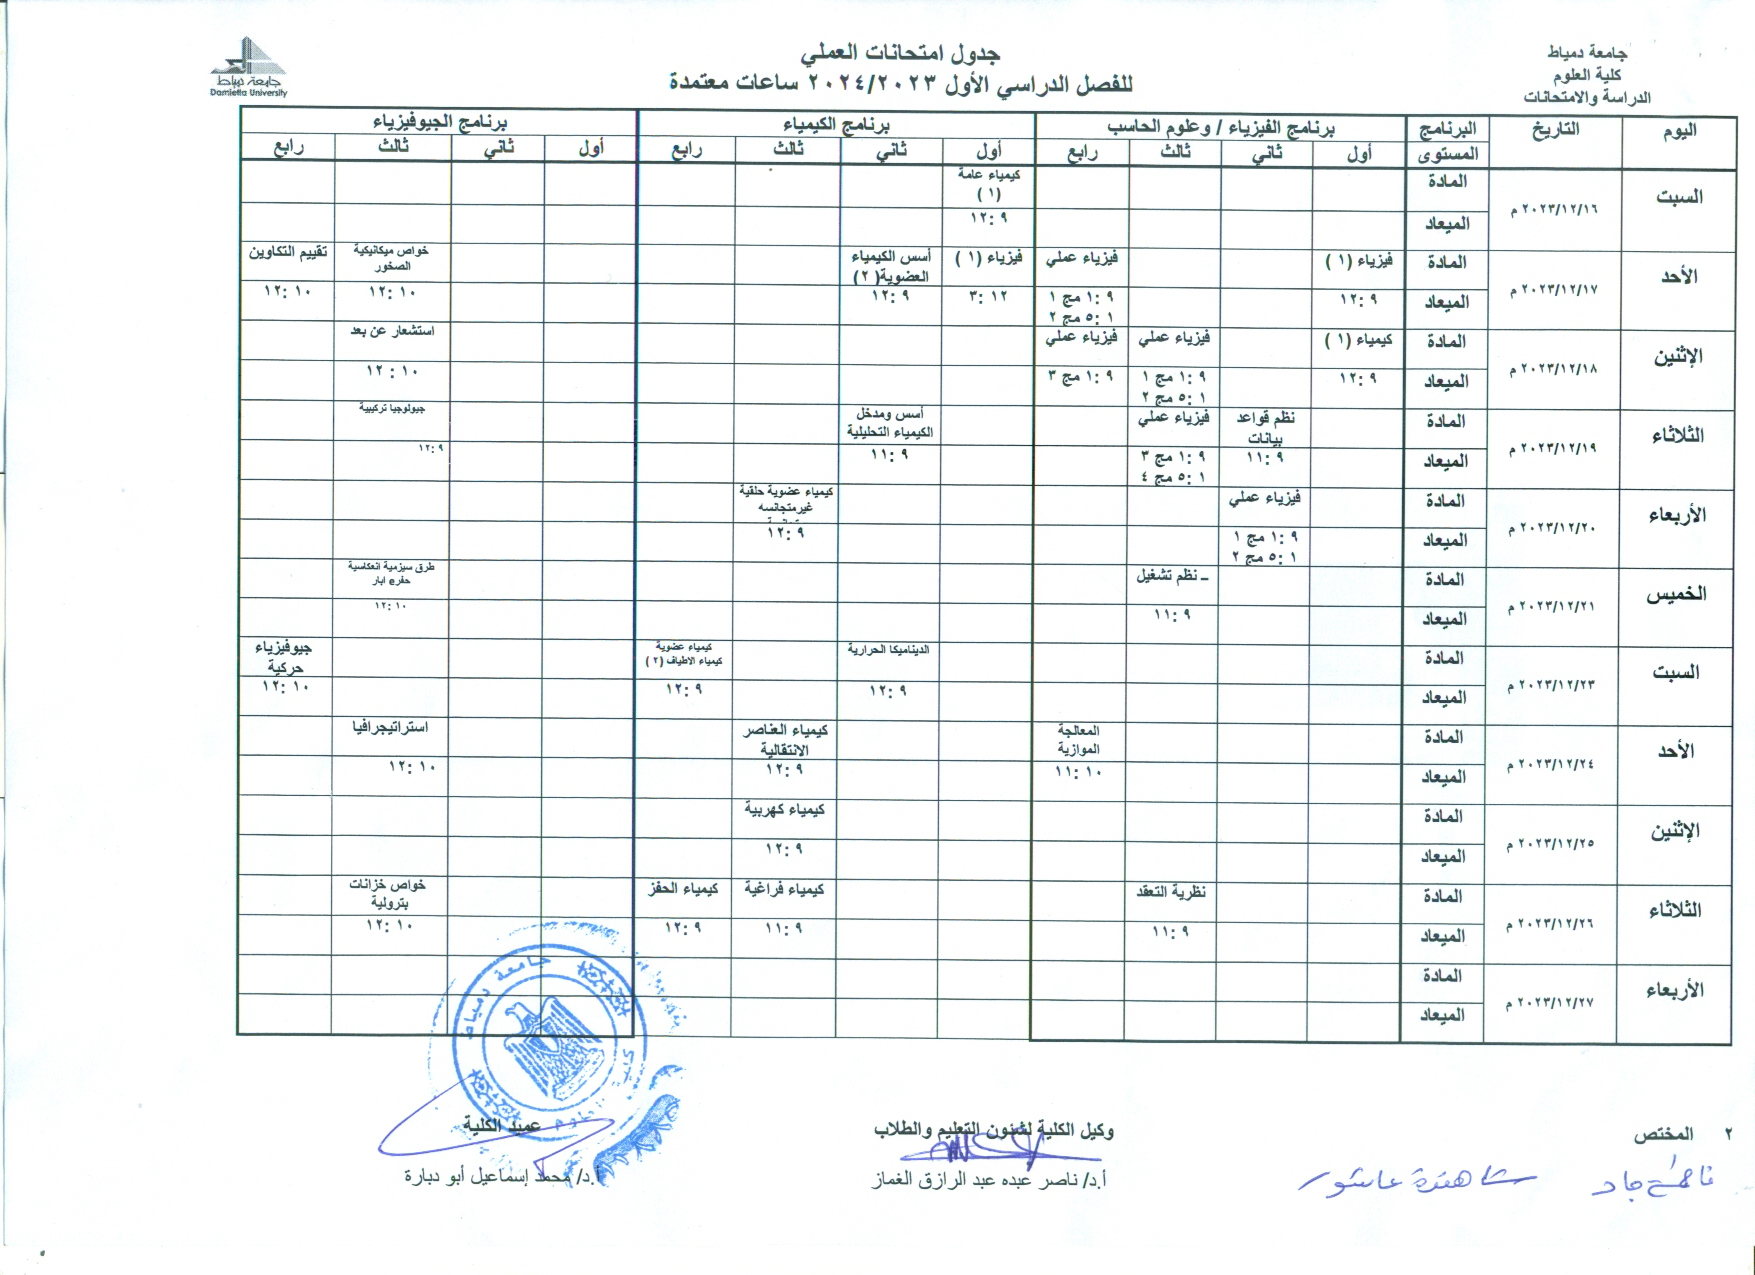 جامعة دمياط
كلية العلوم
الدراسة والامتحانات
جدول امتحانات العملي
للفصل الدراسي الأول ٢٠٢٤/٢٠٢٣ ساعات معتمدة
جامعة دمياط
Damietta University
اليوم التاريخ البرنامج برنامج الفيزياء / وعلوم الحاسب برنامج الكيمياء برنامج الجيوفيزياء
المستوى أول ثاني ثالث رابع أول ثاني ثالث رابع أول ثاني ثالث رابع
السبت ٢٠٢٣/١٢/١٦ م
المادة كيمياء عامة
(١)
الميعاد ٩ :١٢
الأحد ٢٠٢٣/١٢/١٧ م
المادة فيزياء (١) فيزياء عملي فيزياء (١) أسس الكيمياء خواص ميكانيكية تقييم التكاوين
العضوية(٢) الصخور
الميعاد ٩ :١٢ ٩ :١ مج ١ ١٢ :٣ ٩ :١٢ ١٠ :١٢ ١٠ :١٢
١ :٥ مج ٢
الإثنين ٢٠٢٣/١٢/١٨ م
المادة كيمياء (١) فيزياء عملي فيزياء عملي استشعار عن بعد
الميعاد ٩ :١٢ ٩ :١ مج ١ ٩ :١ مج ٣ ١٠ :١٢
١ :٥ مج ٢
الثلاثاء ٢٠٢٣/١٢/١٩ م
المادة نظم قواعد فيزياء عملي أسس ومدخل جيولوجيا تركيبية
بيانات الكيمياء التحليلية
الميعاد ٩ :١١ ٩ :١ مج ٣ ٩ :١١ ٩ :١٢
١ :٥ مج ٤
الأربعاء ٢٠٢٣/١٢/٢٠ م
المادة فيزياء عملي كيمياء عضوية حلقية
غيرمتجانسه
الميعاد ٩ :١ مج ١ ٩ :١٢
١ :٥ مج ٢
الخميس ٢٠٢٣/١٢/٢١ م
المادة – نظم تشغيل طرق سيزمية انعكاسية
حفرع ابار
الميعاد ٩ :١١ ١٠ :١٢
السبت ٢٠٢٣/١٢/٢٣ م
المادة الديناميكا الحرارية كيمياء عضوية جيوفيزياء
كيمياء الاطياف (٢) حركية
الميعاد ٩ :١٢ ٩ :١٢ ١٠ :١٢
الأحد ٢٠٢٣/١٢/٢٤ م
المادة المعالجة كيمياء العناصر استراتيجرافيا
الموازية الانتقالية
الميعاد ١٠ :١١ ٩ :١٢ ١٠ :١٢
الإثنين ٢٠٢٣/١٢/٢٥ م
المادة كيمياء كهربية
الميعاد ٩ :١٢
الثلاثاء ٢٠٢٣/١٢/٢٦ م
المادة نظرية التعقد كيمياء فراغية كيمياء الحفز خواص خزانات
بترولية
الميعاد ٩ :١١ ٩ :١١ ٩ :١٢ ١٠ :١٢
الأربعاء ٢٠٢٣/١٢/٢٧ م
المادة
الميعاد
جامعة دمياط
٢ المختص
شاهندة عاشور
وكيل الكلية لشئون التعليم والطلاب
أ.د/ ناصر عبده عبد الرازق الغماز
عميد الكلية
أ.د/ محمد إسماعيل أبو دبارة